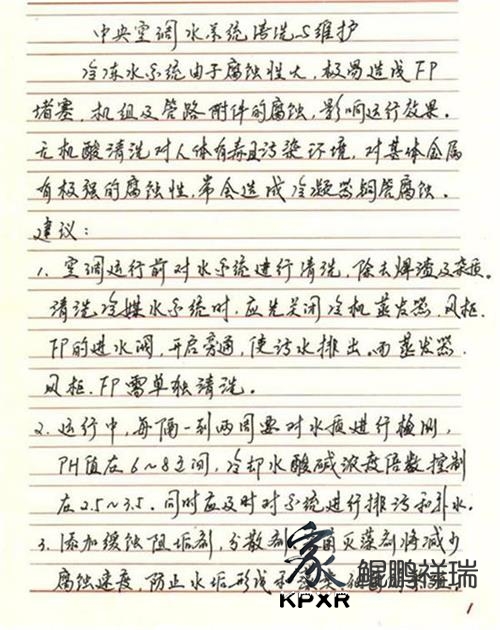 中央空调水系统清洗与维护
冷冻水系统由于腐蚀性大，极易造成FP
堵塞，机组及管路附件的腐蚀，影响运行效果。
无机酸清洗对人体有毒且污染环境，对基体金属
有极强的腐蚀性，常会造成冷凝器铜管腐蚀。
建议：
1. 空调运行前对水系统进行清洗，除去焊渣及杂质。
清洗冷媒水系统时，应先关闭冷机蒸发器、风柜、
FP的进水阀，开启旁通，使污水排出。而蒸发器、
风柜、FP需单独清洗。
2. 运行中，每隔一到两周要对水质进行检测，
PH值在6~8之间，冷却水酸碱浓度倍数控制
在2.5~3.5。同时应及时对系统进行排污和补水。
3. 添加缓蚀阻垢剂，分散剂 灭藻剂将减少
腐蚀速度，防止水垢形成和
家
KPXR
鲲鹏祥瑞
1